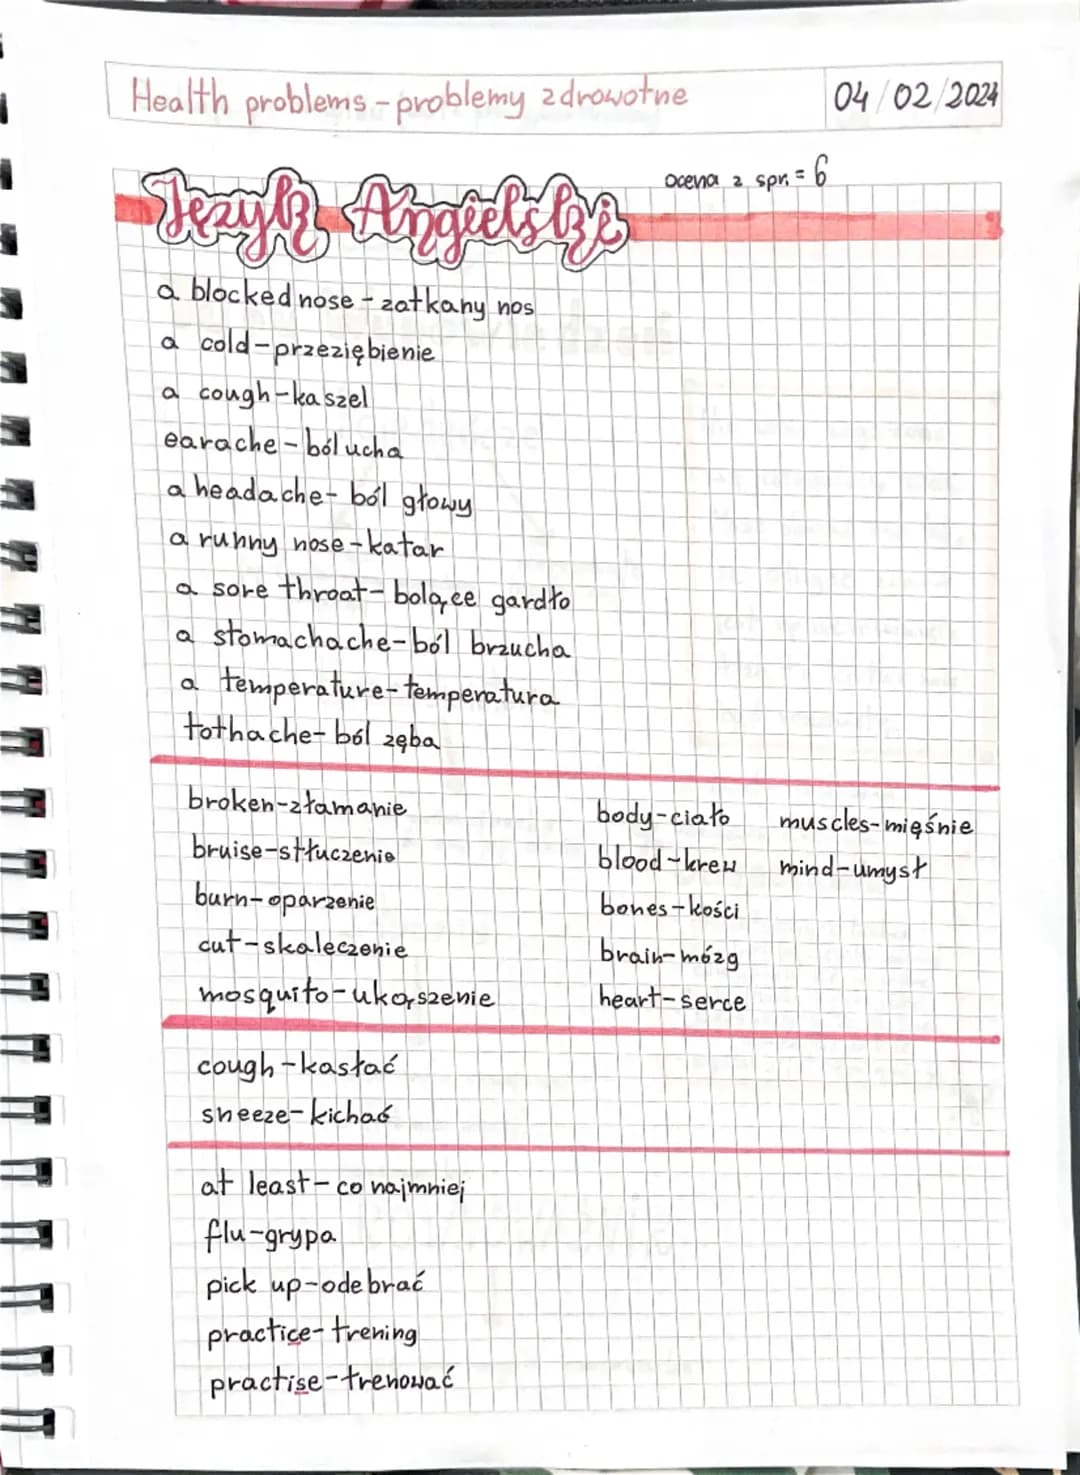 Health problems - problemy zdrowotne
04/02/2024
ocena z spr. = 6
Język Angielski
a blocked nose - zatkany nos
a cold - przeziębienie
a cough - kaszel
earache - ból ucha
a headache - ból głowy
a runny nose - katar
a sore throat - bolące gardło
a stomachache - ból brzucha
a temperature - temperatura
tothache - ból zęba
broken - złamanie
bruise - stłuczenie
burn - oparzenie
cut - skaleczenie
mosquito - ukąszenie
body - ciało
blood - krew
bones - kości
brain - mózg
heart - serce
muscles - mięśnie
mind - umysł
cough - kasłać
sneeze - kichać
at least - co najmniej
flu - grypa
pick up - odebrać
practice - trening
practise - trenować